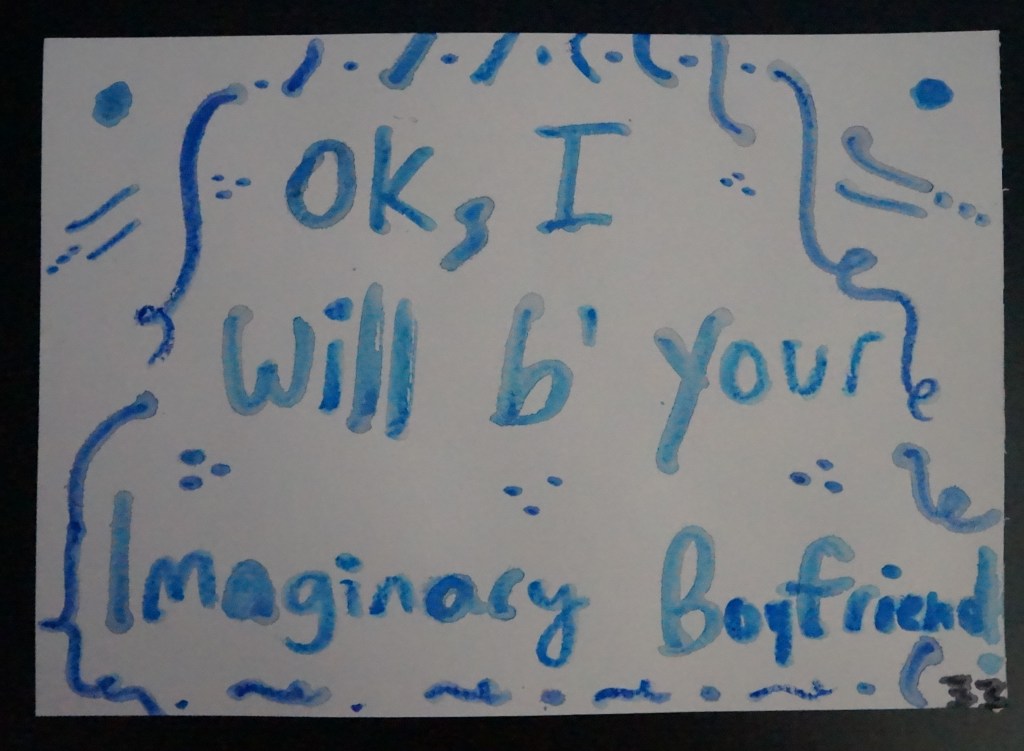 OK, I
Will b' your
Imaginary Boyfriend
33